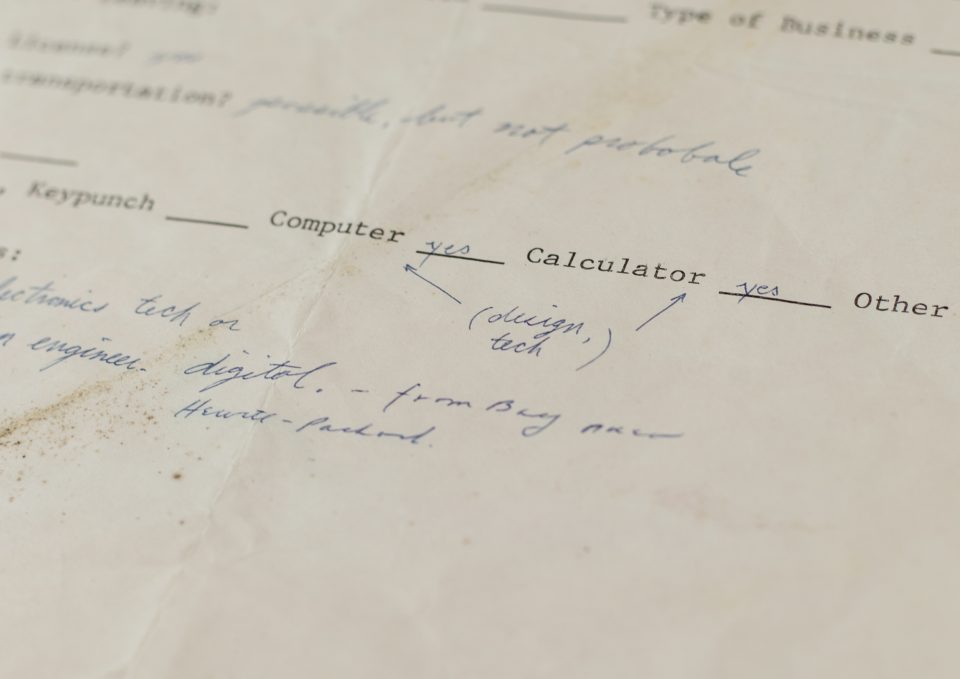 Type of Business
yes
transportation? possible, but not probobale
Keypunch Computer yes Calculator yes Other
s:
(design,
tech)
ectronics tech or
n engineer. digital. - from Bay
Hewitt-Packard.